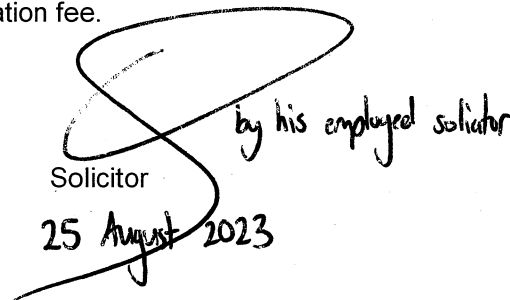 ation fee.
by his employed solicitor
Solicitor
25 August 2023